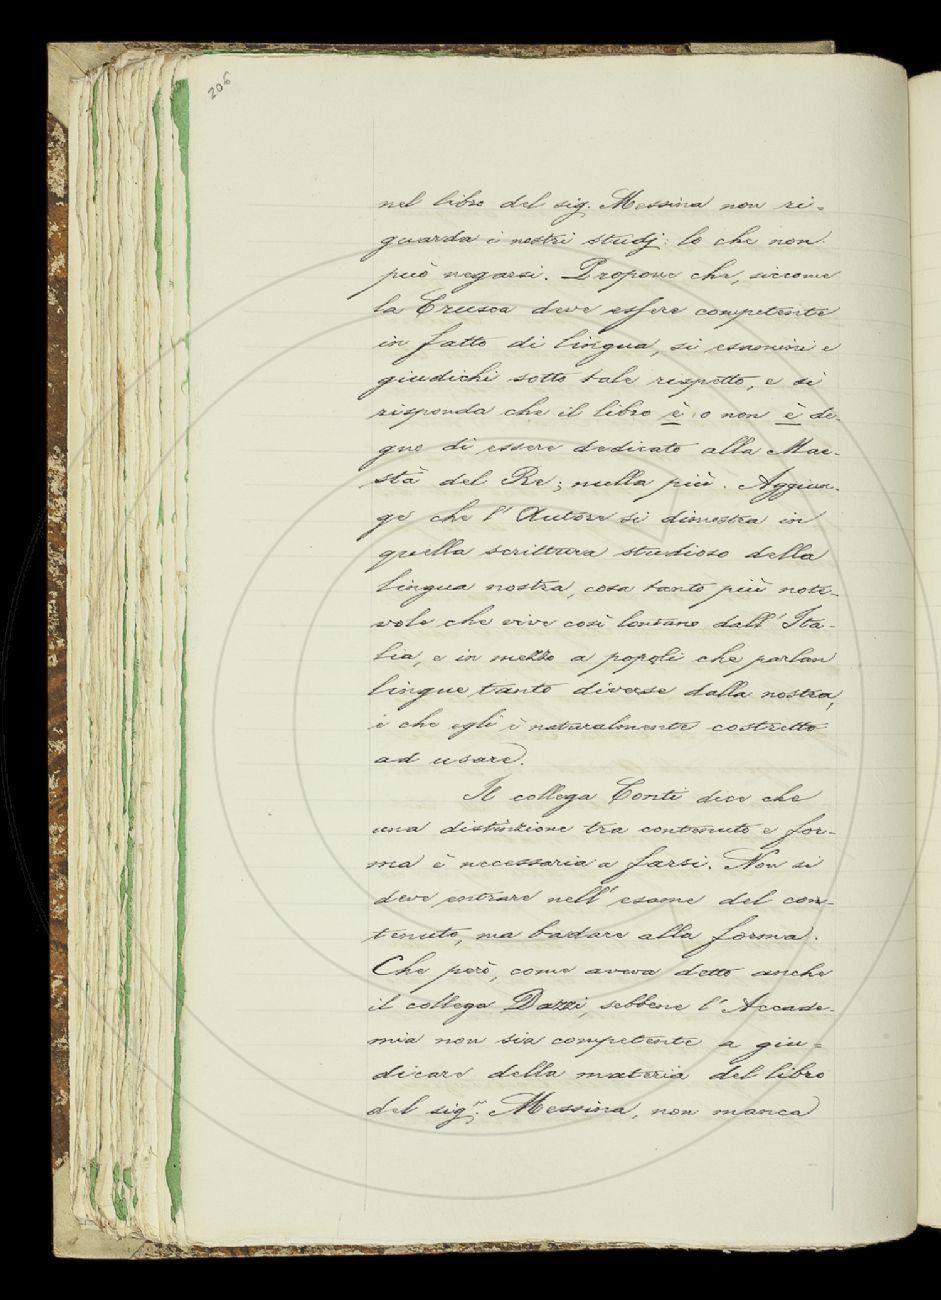 206
nel libro del sig. Messina non ri-
guarda i nostri studj: lo che non
può negarsi. Propone che, siccome
la Crusca deve essere competente
in fatto di lingua, si esamini e
giudichi sotto tale rispetto, e si
risponda che il libro è o non è de-
gno di essere dedicato alla Mae-
stà del Re; nulla più. Aggiun-
ge che l'Autore si dimostra in
quella scrittura studioso della
lingua nostra, cosa tanto più note-
vole che vive così lontano dall'Ita-
lia, e in mezzo a popoli che parlan
lingue tanto diverse dalla nostra,
e che egli è naturalmente costretto
ad usare.
Il collega Conti dice che
una distinzione tra contenuto e for-
ma è necessaria a farsi. Non si
deve entrare nell'esame del con-
tenuto, ma badare alla forma.
Che però, come aveva detto anche
il collega Dazzi, sebbene l'Accade-
mia non sia competente a giu-
dicare della materia del libro
del sigr. Messina, non manca